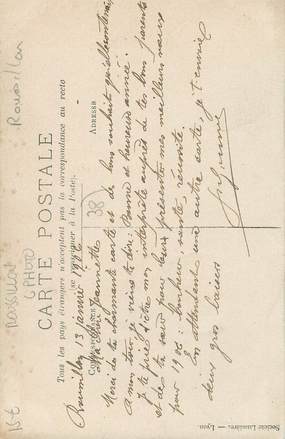 CARTE POSTALE
Tous les pays étrangers n'acceptent pas la correspondance au recto
(se renseigner à la Poste)
CORRESPONDANCE
ADRESSE
Roussillon 13 janvier 1906
Ma chère Jeannette
Merci de ta charmante carte et de bons souhaits qu'elle contenait,
A mon tour, je viens te dire: Bonne et heureuse année!
Je te prie d'être mon interprète auprès de tes bons parents
et de ta sœur pour leur présenter mes meilleurs vœux
pour 1906: bonheur, santé, réussite.
En attendant une autre carte, je t'envoie
deux gros baisers
38
Roussillon
15€
Société Lumière. — Lyon